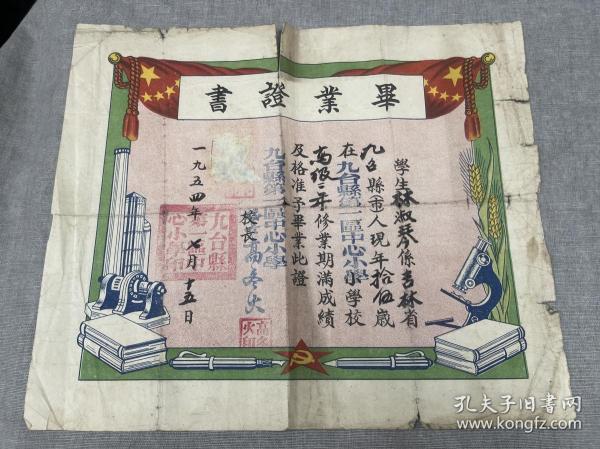 畢業證書
學生林淑琴係吉林省
九台縣市人現年拾伍歲
在九台縣第一區中心小學校
高級二年修業期滿成績
及格准予畢業此證
九台縣第一區中心小學
校長高冬火
一九五四年七月十五日
九台縣
第一區中
心小學
孔夫子旧书网
www.kongfz.com